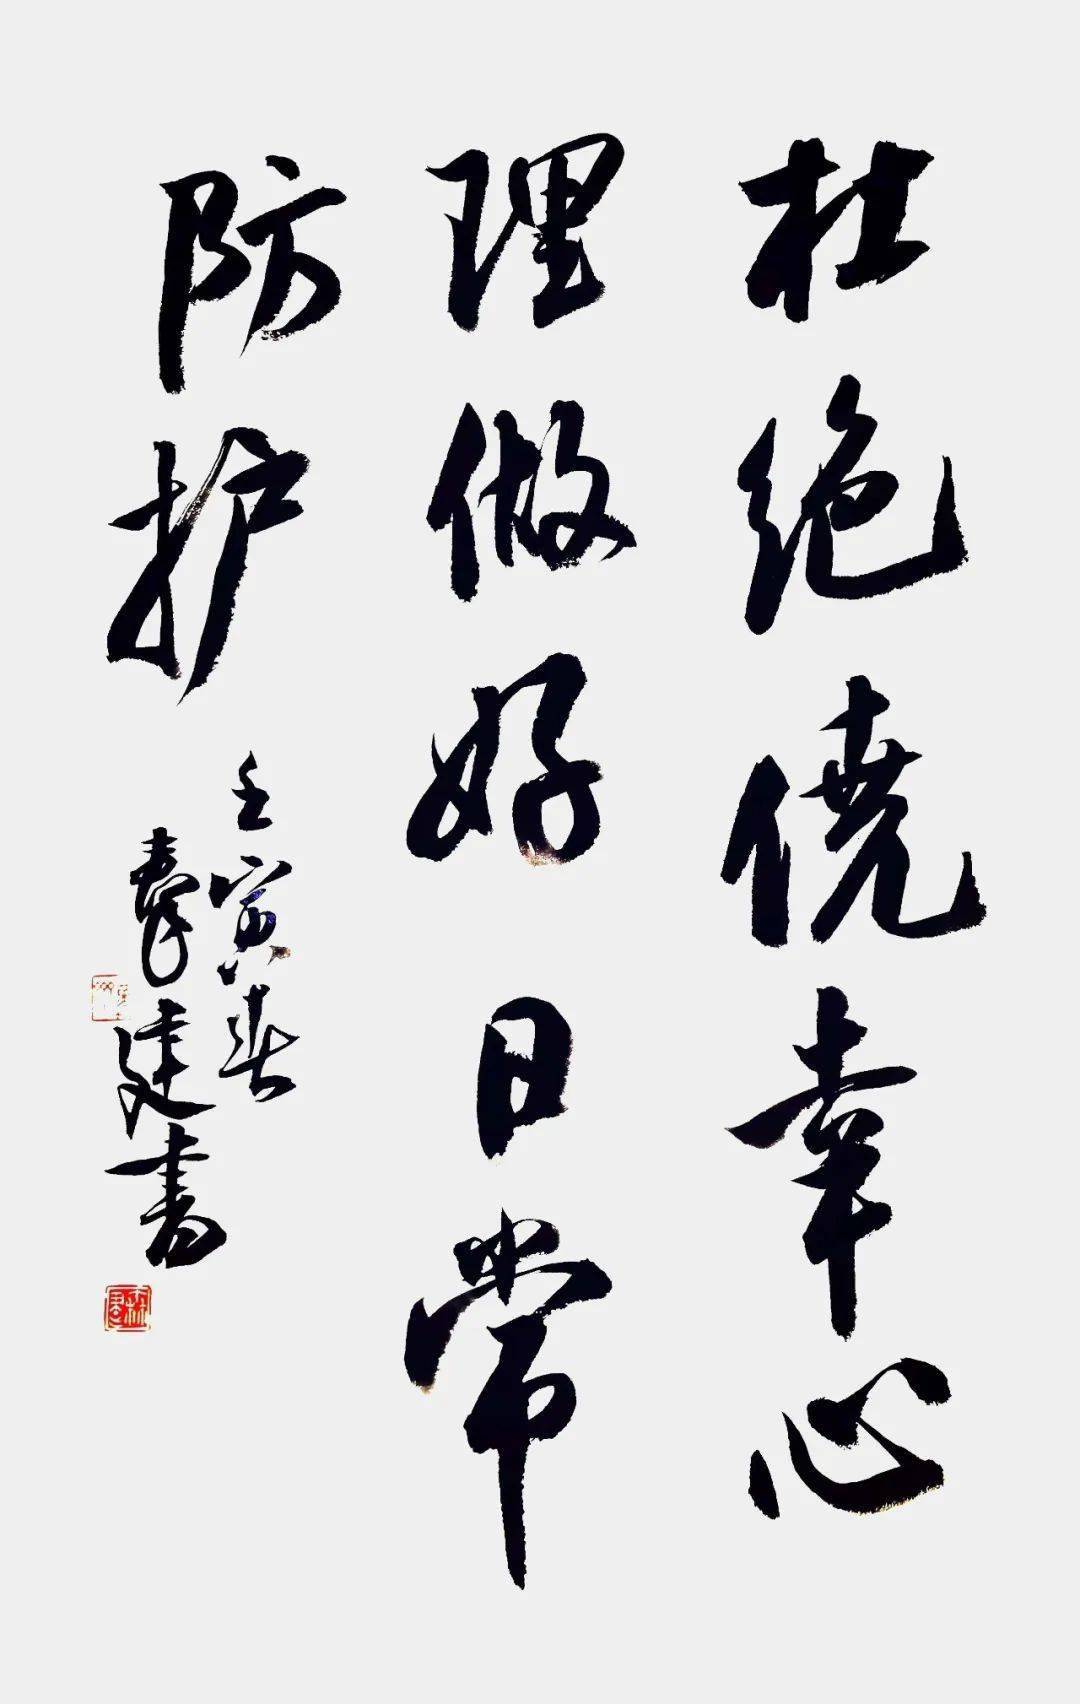 杜绝侥幸心
理做好日常
防护
壬寅春
建书